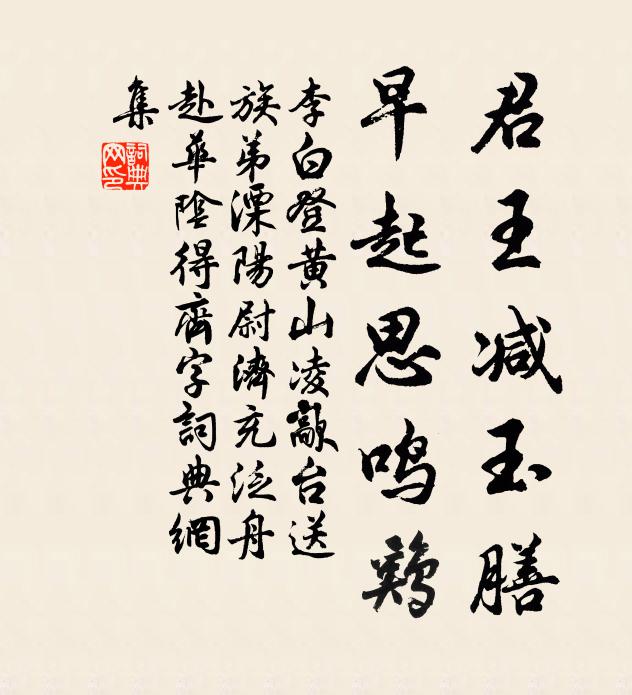 君王减玉膳
早起思鸣鷄
李白登黄山凌歊台送
族弟溧陽尉濟充泛舟
赴華陰得齊字詞典網
集
詞典網印